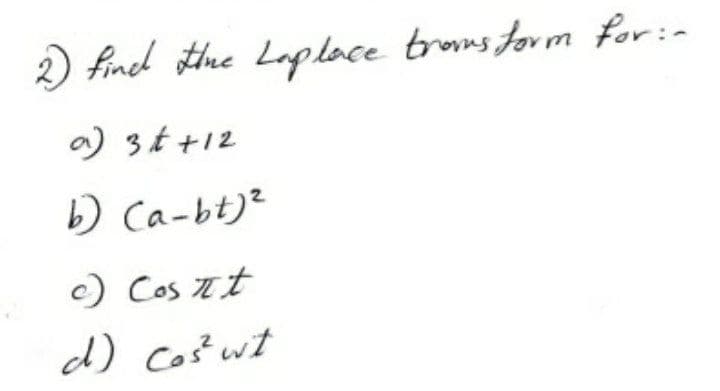 2) find the Laplace transform for:-
a) 3t +12
b) (a-bt)²
c) Cos πt
d) Cos² wt